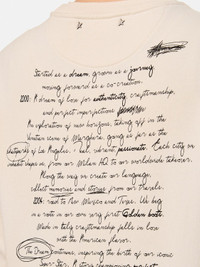 Started as a dream, grown as a journey
moving forward as a co-creation.
2000: A dream of love for authenticity, craftsmanship,
and perfect imperfections
An exploration of new horizons, taking off in the
Venetian scene of Marghera, going as far as the
skateparks of Los Angeles, vibrant, passionate. Each city an
from our Milan HQ to our worldwide takeover.
Along the way we create our language,
collect memories and stories from our travels.
2007: road to New Mexico and Texas. We bring
a boot in our own very first Golden boot.
Made in Italy craftsmanship falls in love
with the American flavor.
The Dream continues, inspiring the birth of our iconic